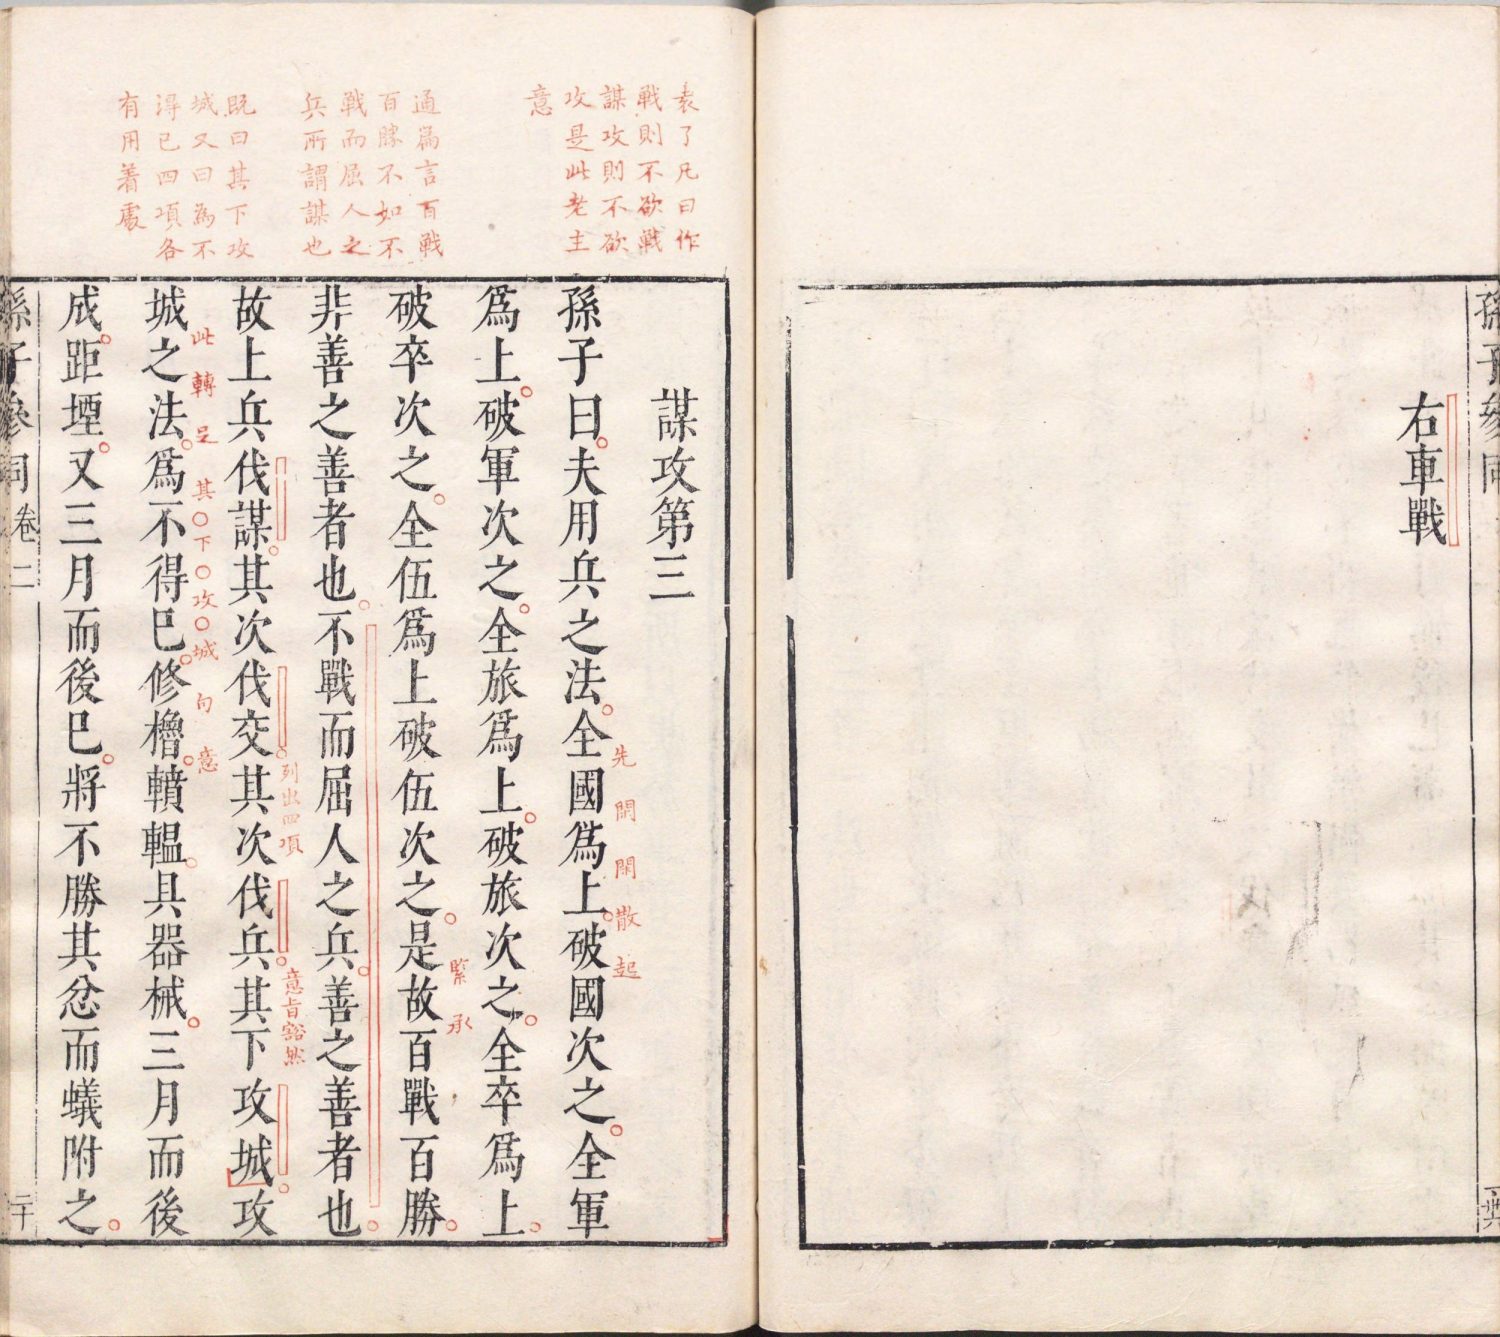 孫子參同
右車戰
袁了凡曰作
戰則不欲戰
謀攻則不欲
攻是此老主
意
通篇言百戰
百勝不如不
戰而屈人之
兵所謂謀也
既曰其下攻
城又曰為不
得已四項各
有用着處
謀攻第三
孫子曰夫用兵之法全國爲上破國次之全軍
先開闊散起
爲上破軍次之全旅爲上破旅次之全卒爲上
破卒次之全伍爲上破伍次之是故百戰百勝
緊承
非善之善者也不戰而屈人之兵善之善者也
故上兵伐謀其次伐交其次伐兵其下攻城攻
列出四項
意旨豁然
城之法爲不得已修櫓轒轀具器械三月而後
此轉足其下攻城句意
成距堙又三月而後已將不勝其忿而蟻附之
孫子參同卷二
二十